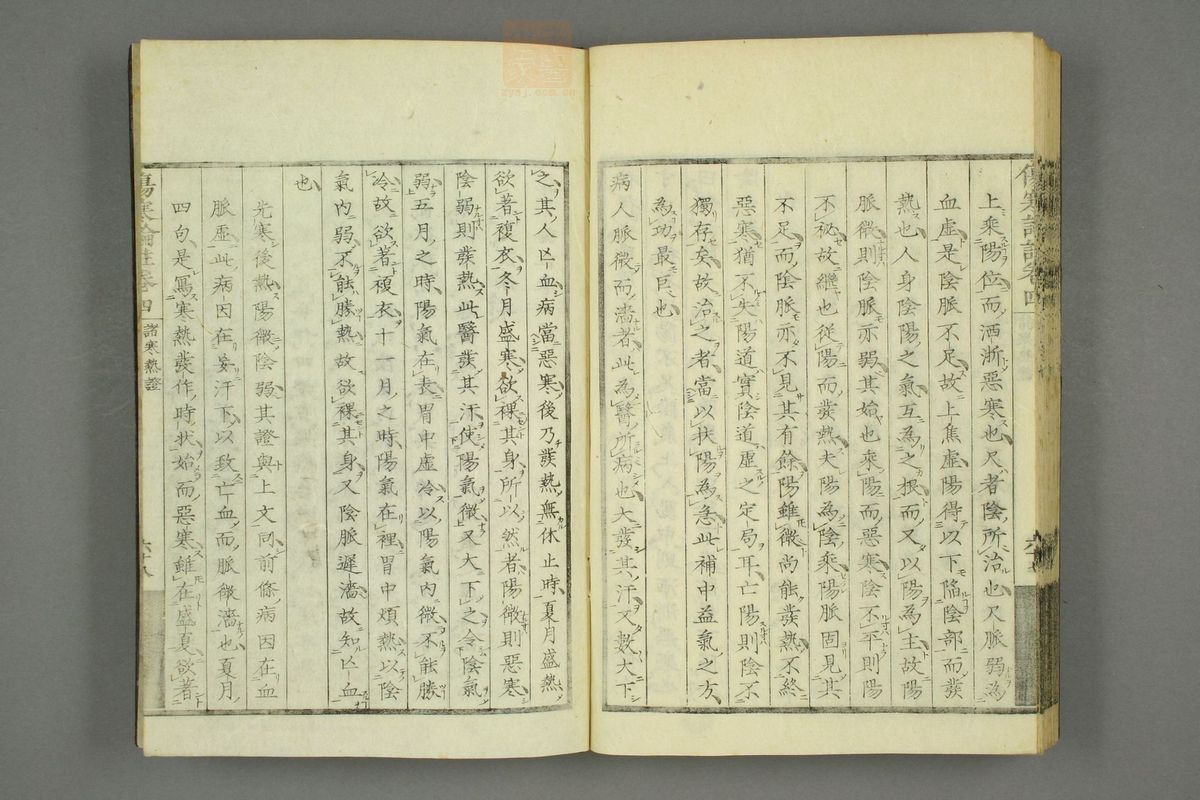 上乘陽位而洒淅惡寒也尺者陰所治也尺脈弱為
血虛是陰脈不足故上焦虛陽得以下陷陰部而發
熱也人身陰陽之氣互為之根而又以陽為主故陽
脈微則陰脈亦弱其始也來陽而惡寒陰不平則陽
不秘故繼也從陽而發熱夫陽為陰乘陽脈固見其
不足而陰脈亦不見其有餘陽雖微尚能發熱不終
惡寒猶不失陽道實陰道虛之定局耳亡陽則陰不
獨存矣故治之者當以扶陽為急此補中益氣之方
為功最巨也
病人脈微而濇者此為醫所病也大發其汗又數大下
之其人亡血病當惡寒後乃發熱無休止時夏月盛熱
欲著複衣冬月盛寒欲裸其身所以然者陽微則惡寒
陰弱則發熱此醫發其汗使陽氣微又大下之令陰氣
弱五月之時陽氣在表胃中虛冷以陽氣內微不能勝
冷故欲著複衣十一月之時陽氣在裡胃中煩熱以陰
氣內弱不能勝熱故欲裸其身又陰脈遲濇故知亡血
也
先寒後熱陽微陰弱其證與上文同前條病因在血
脈虛此病因在妄汗下以致亡血而脈微濇也夏月
四句是寫寒熱發作時狀始而惡寒雖在盛夏欲著
傷寒論註卷四
諸寒熱證
六十八